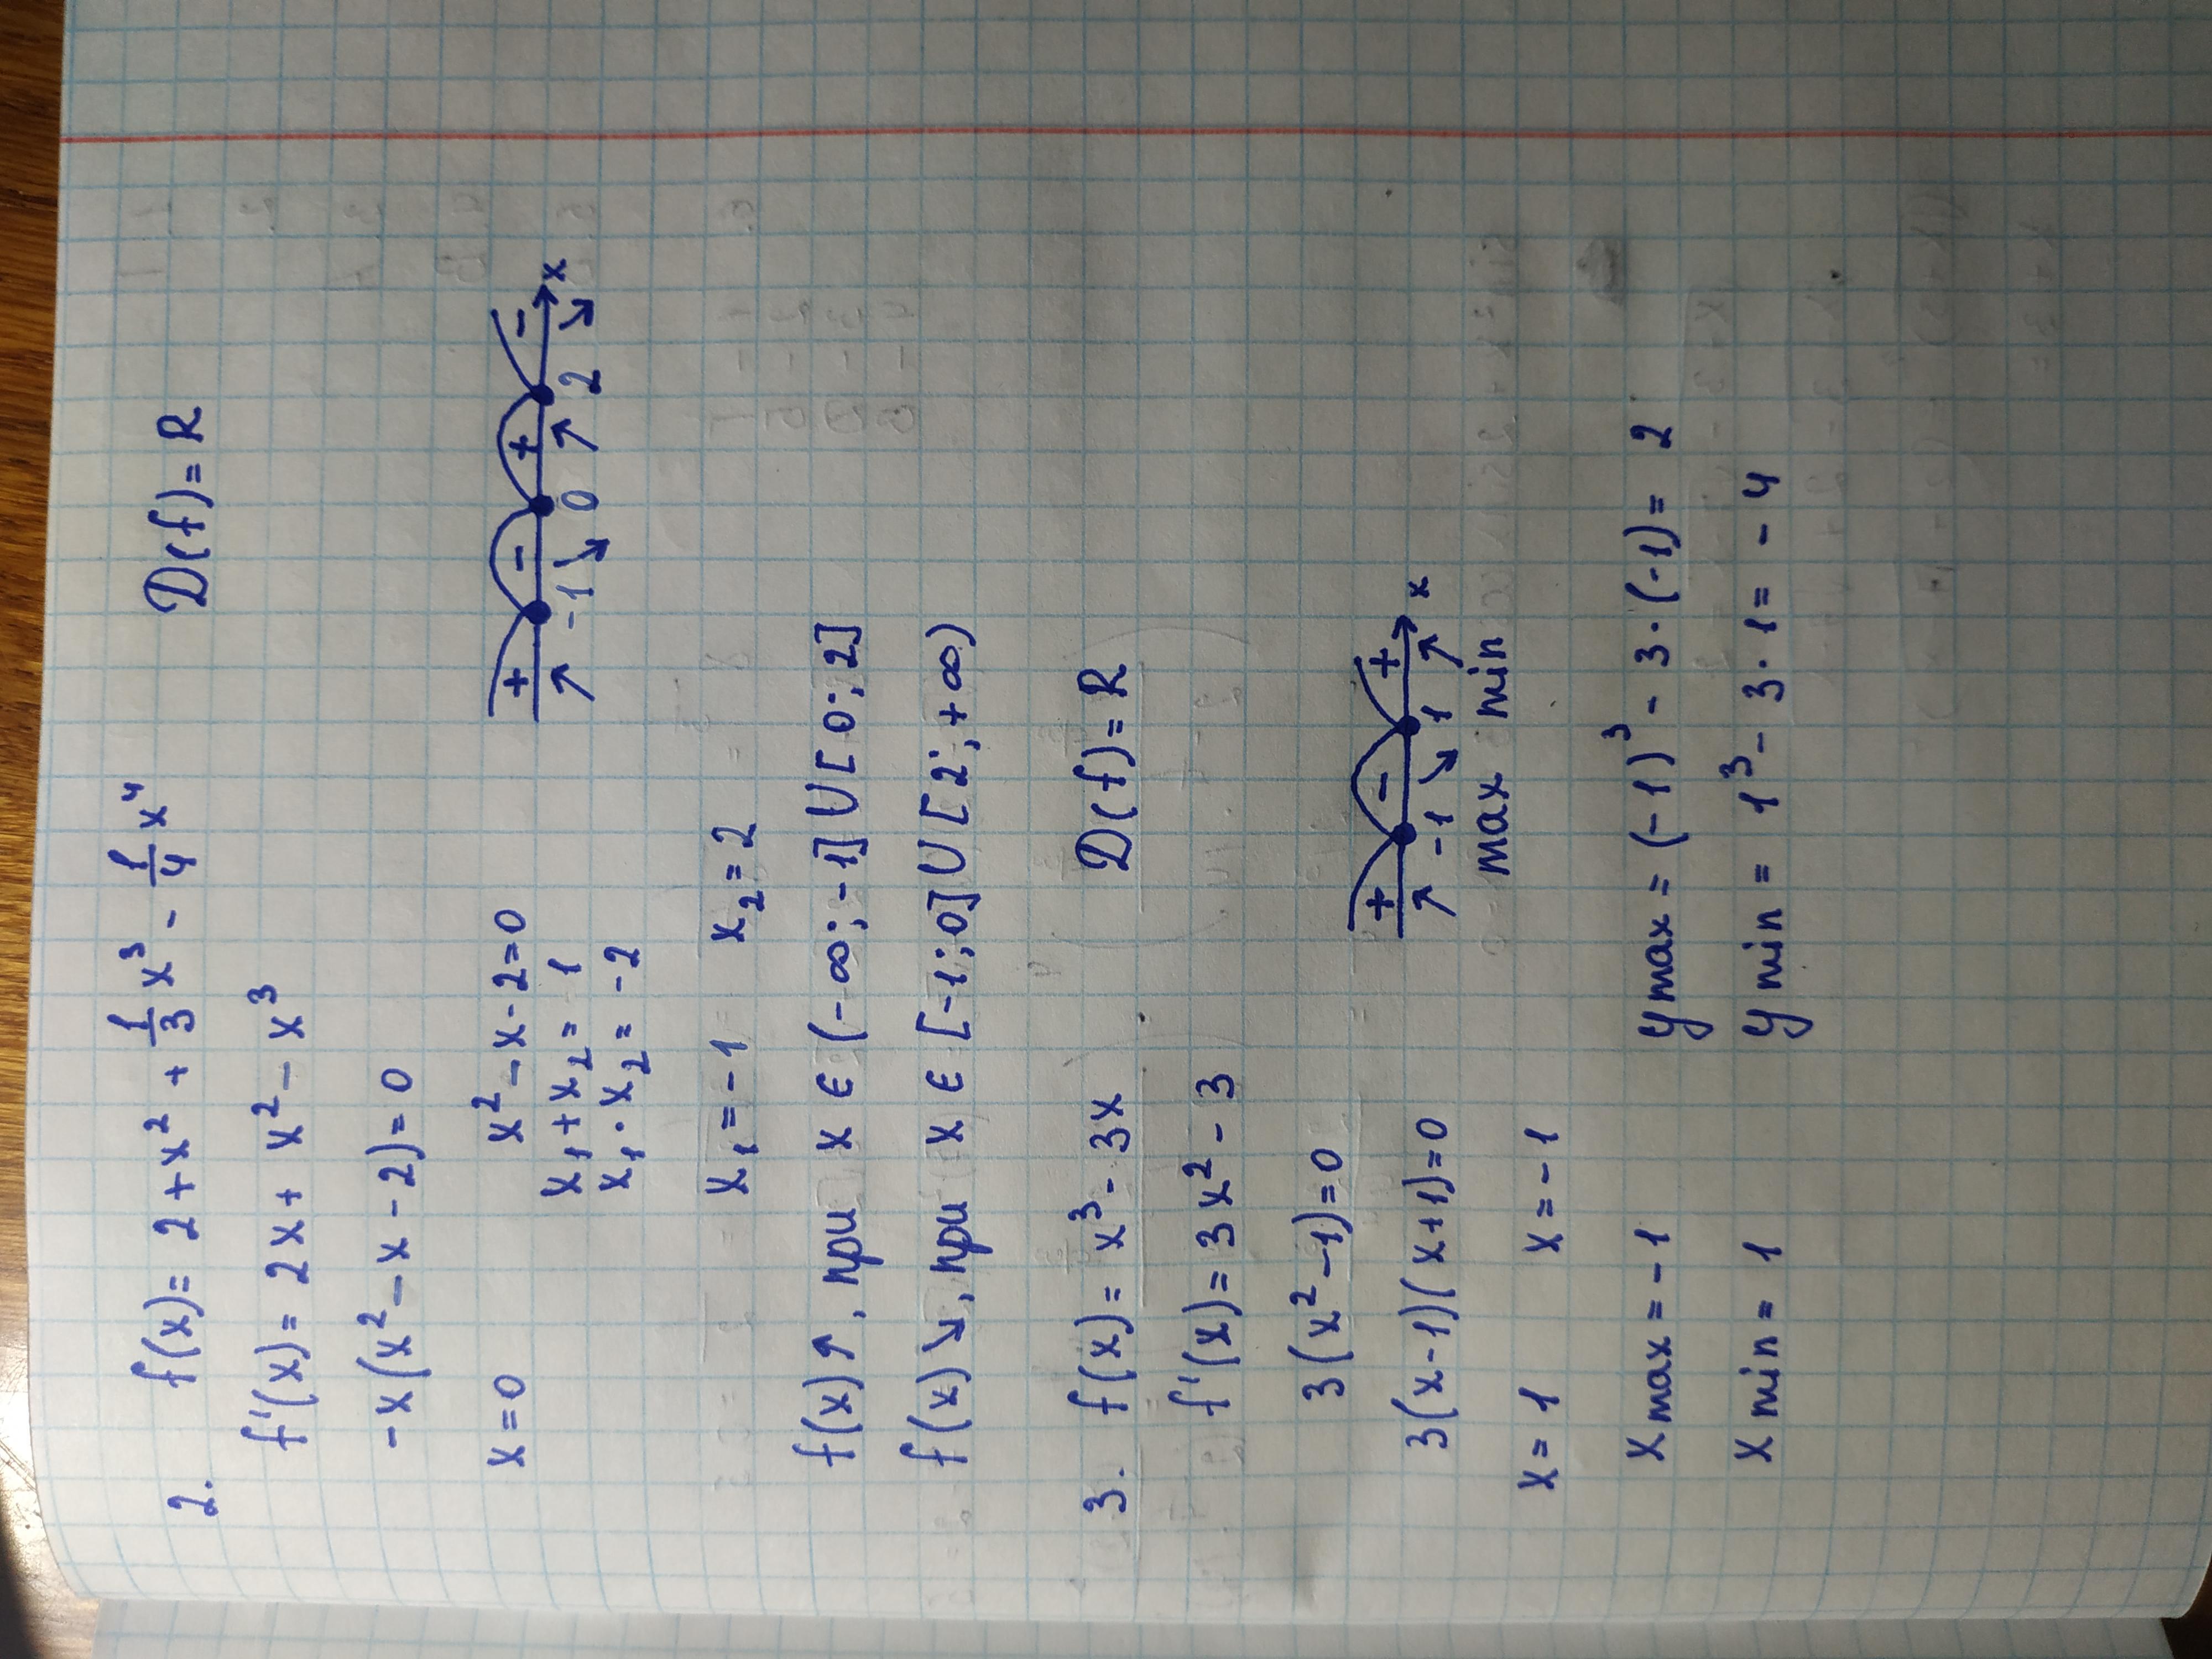 2. f(x) = 2 + x² + 1/3 x³ - 1/4 x⁴ D(f) = R
f'(x) = 2x + x² - x³
-x(x² - x - 2) = 0
x = 0 x² - x - 2 = 0
+ - + -
x₁ + x₂ = 1
-1 0 2 x
x₁ · x₂ = -2
x₁ = -1 x₂ = 2
f(x)↗, при x ∈ (-∞; -1] U [0; 2]
f(x)↘, при x ∈ [-1; 0] U [2; +∞)
3. f(x) = x³ - 3x D(f) = R
f'(x) = 3x² - 3
3(x² - 1) = 0
3(x-1)(x+1) = 0
+ - +
-1 1 x
max min
x = 1 x = -1
x max = -1 y max = (-1)³ - 3 · (-1) = 2
x min = 1 y min = 1³ - 3 · 1 = -4